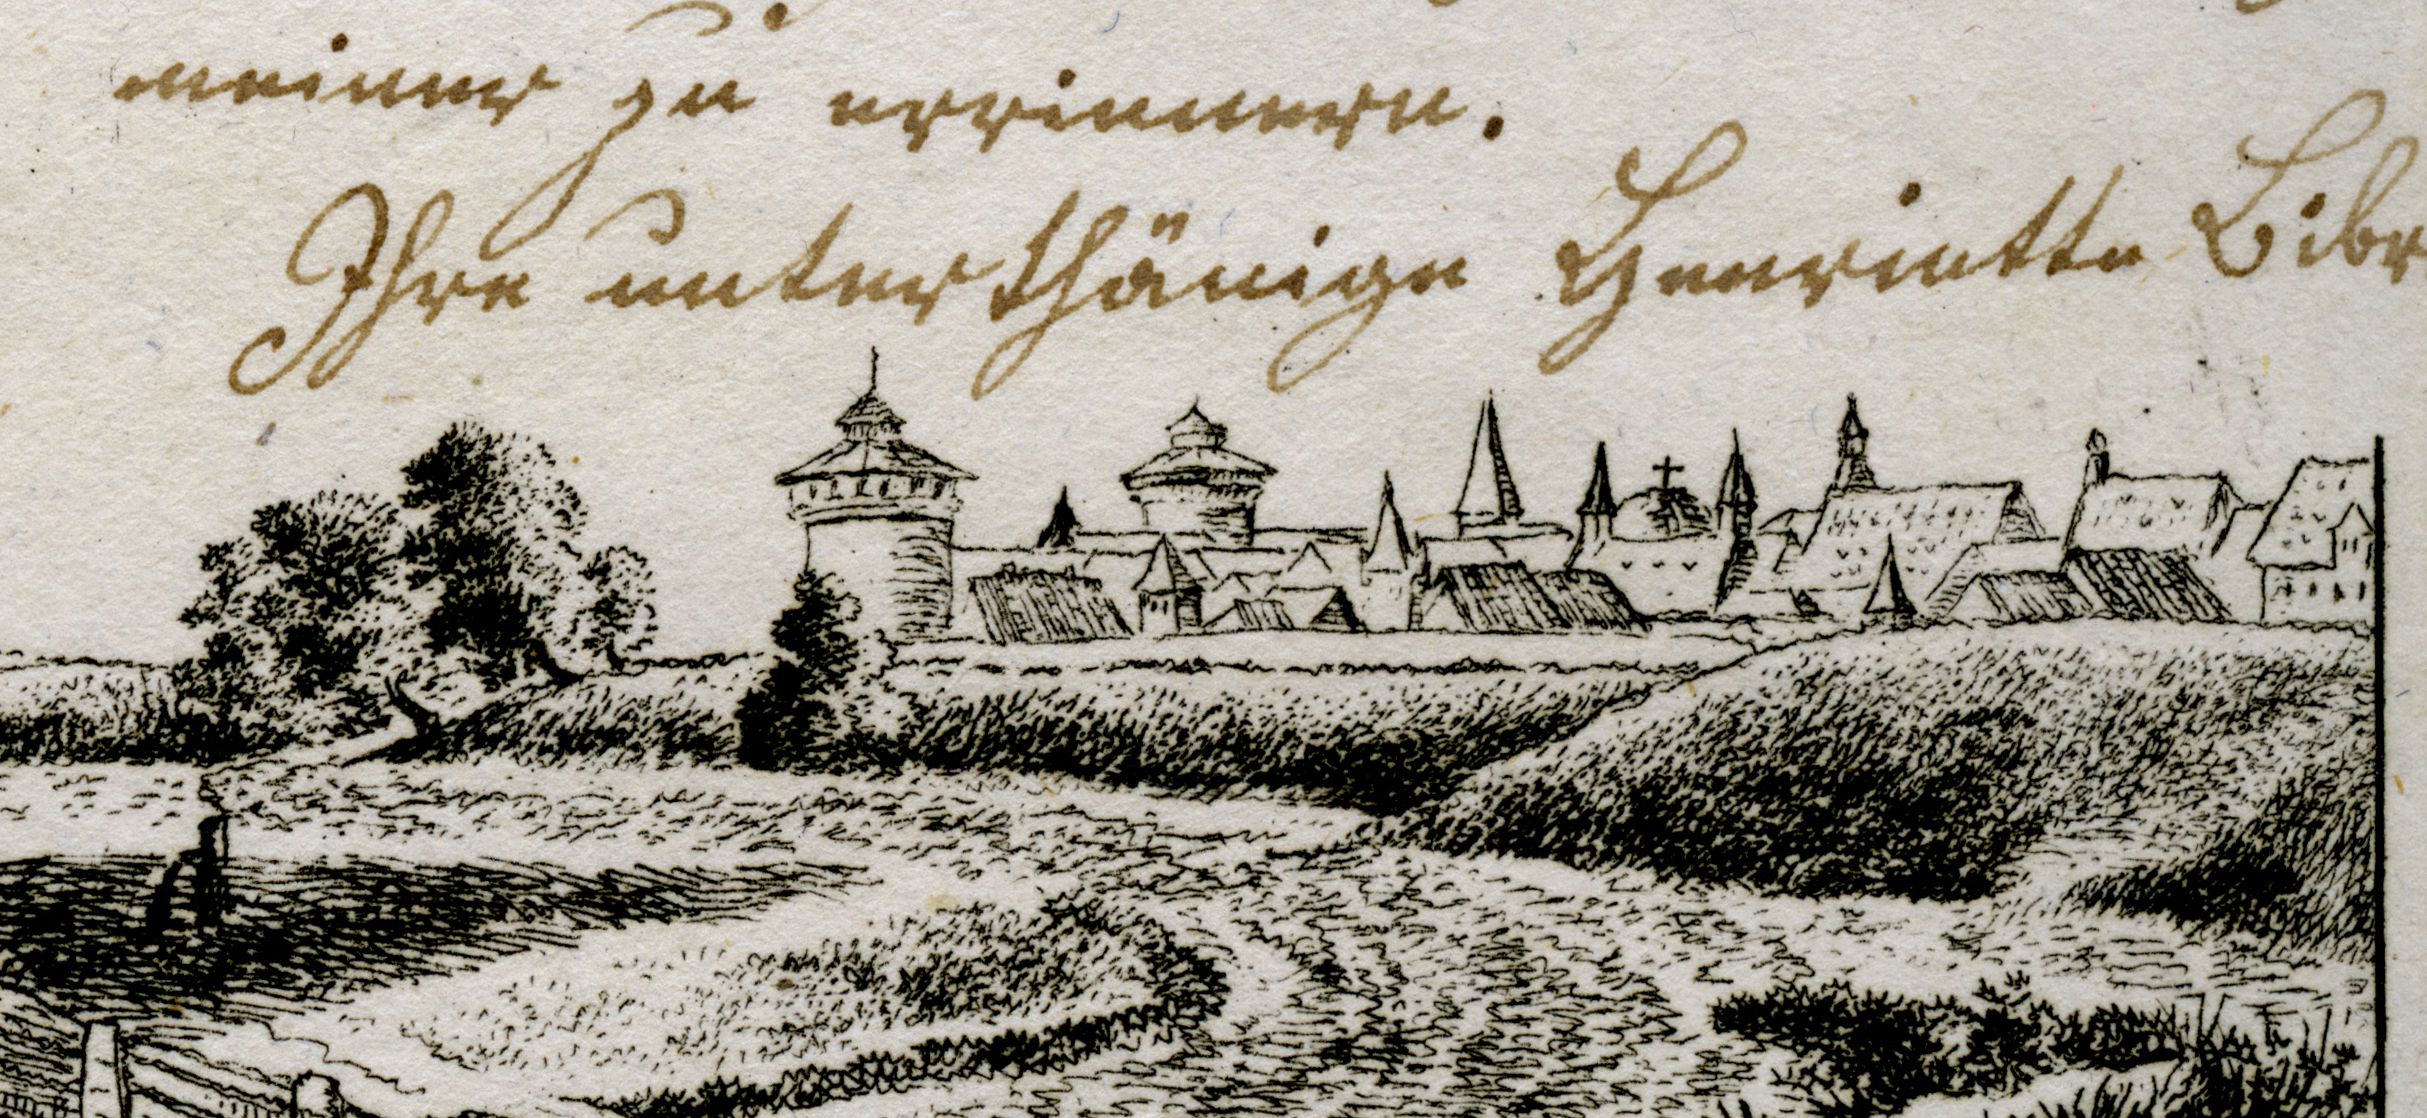 meiner zu errinnern.
Ihre unterthänige Henriette Bibr